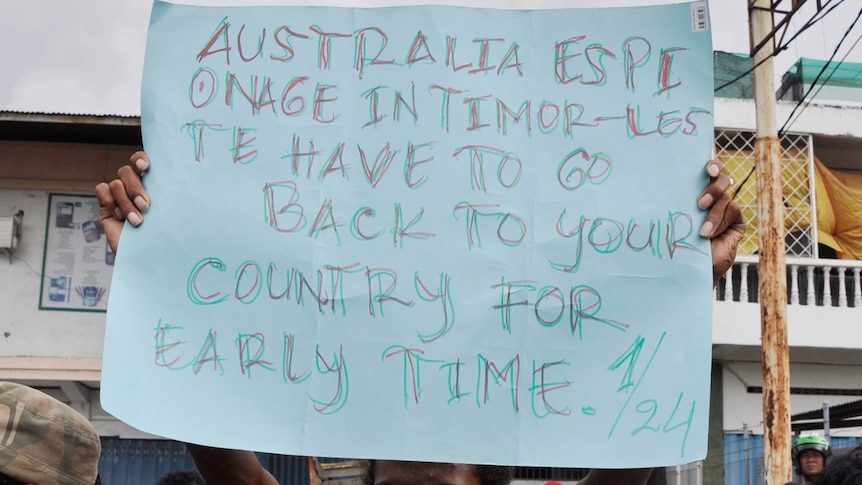 AUSTRALIA ESPI
ONAGE IN TIMOR-LES
TE HAVE TO GO
BACK TO YOUR
COUNTRY FOR
EARLY TIME. 1/24